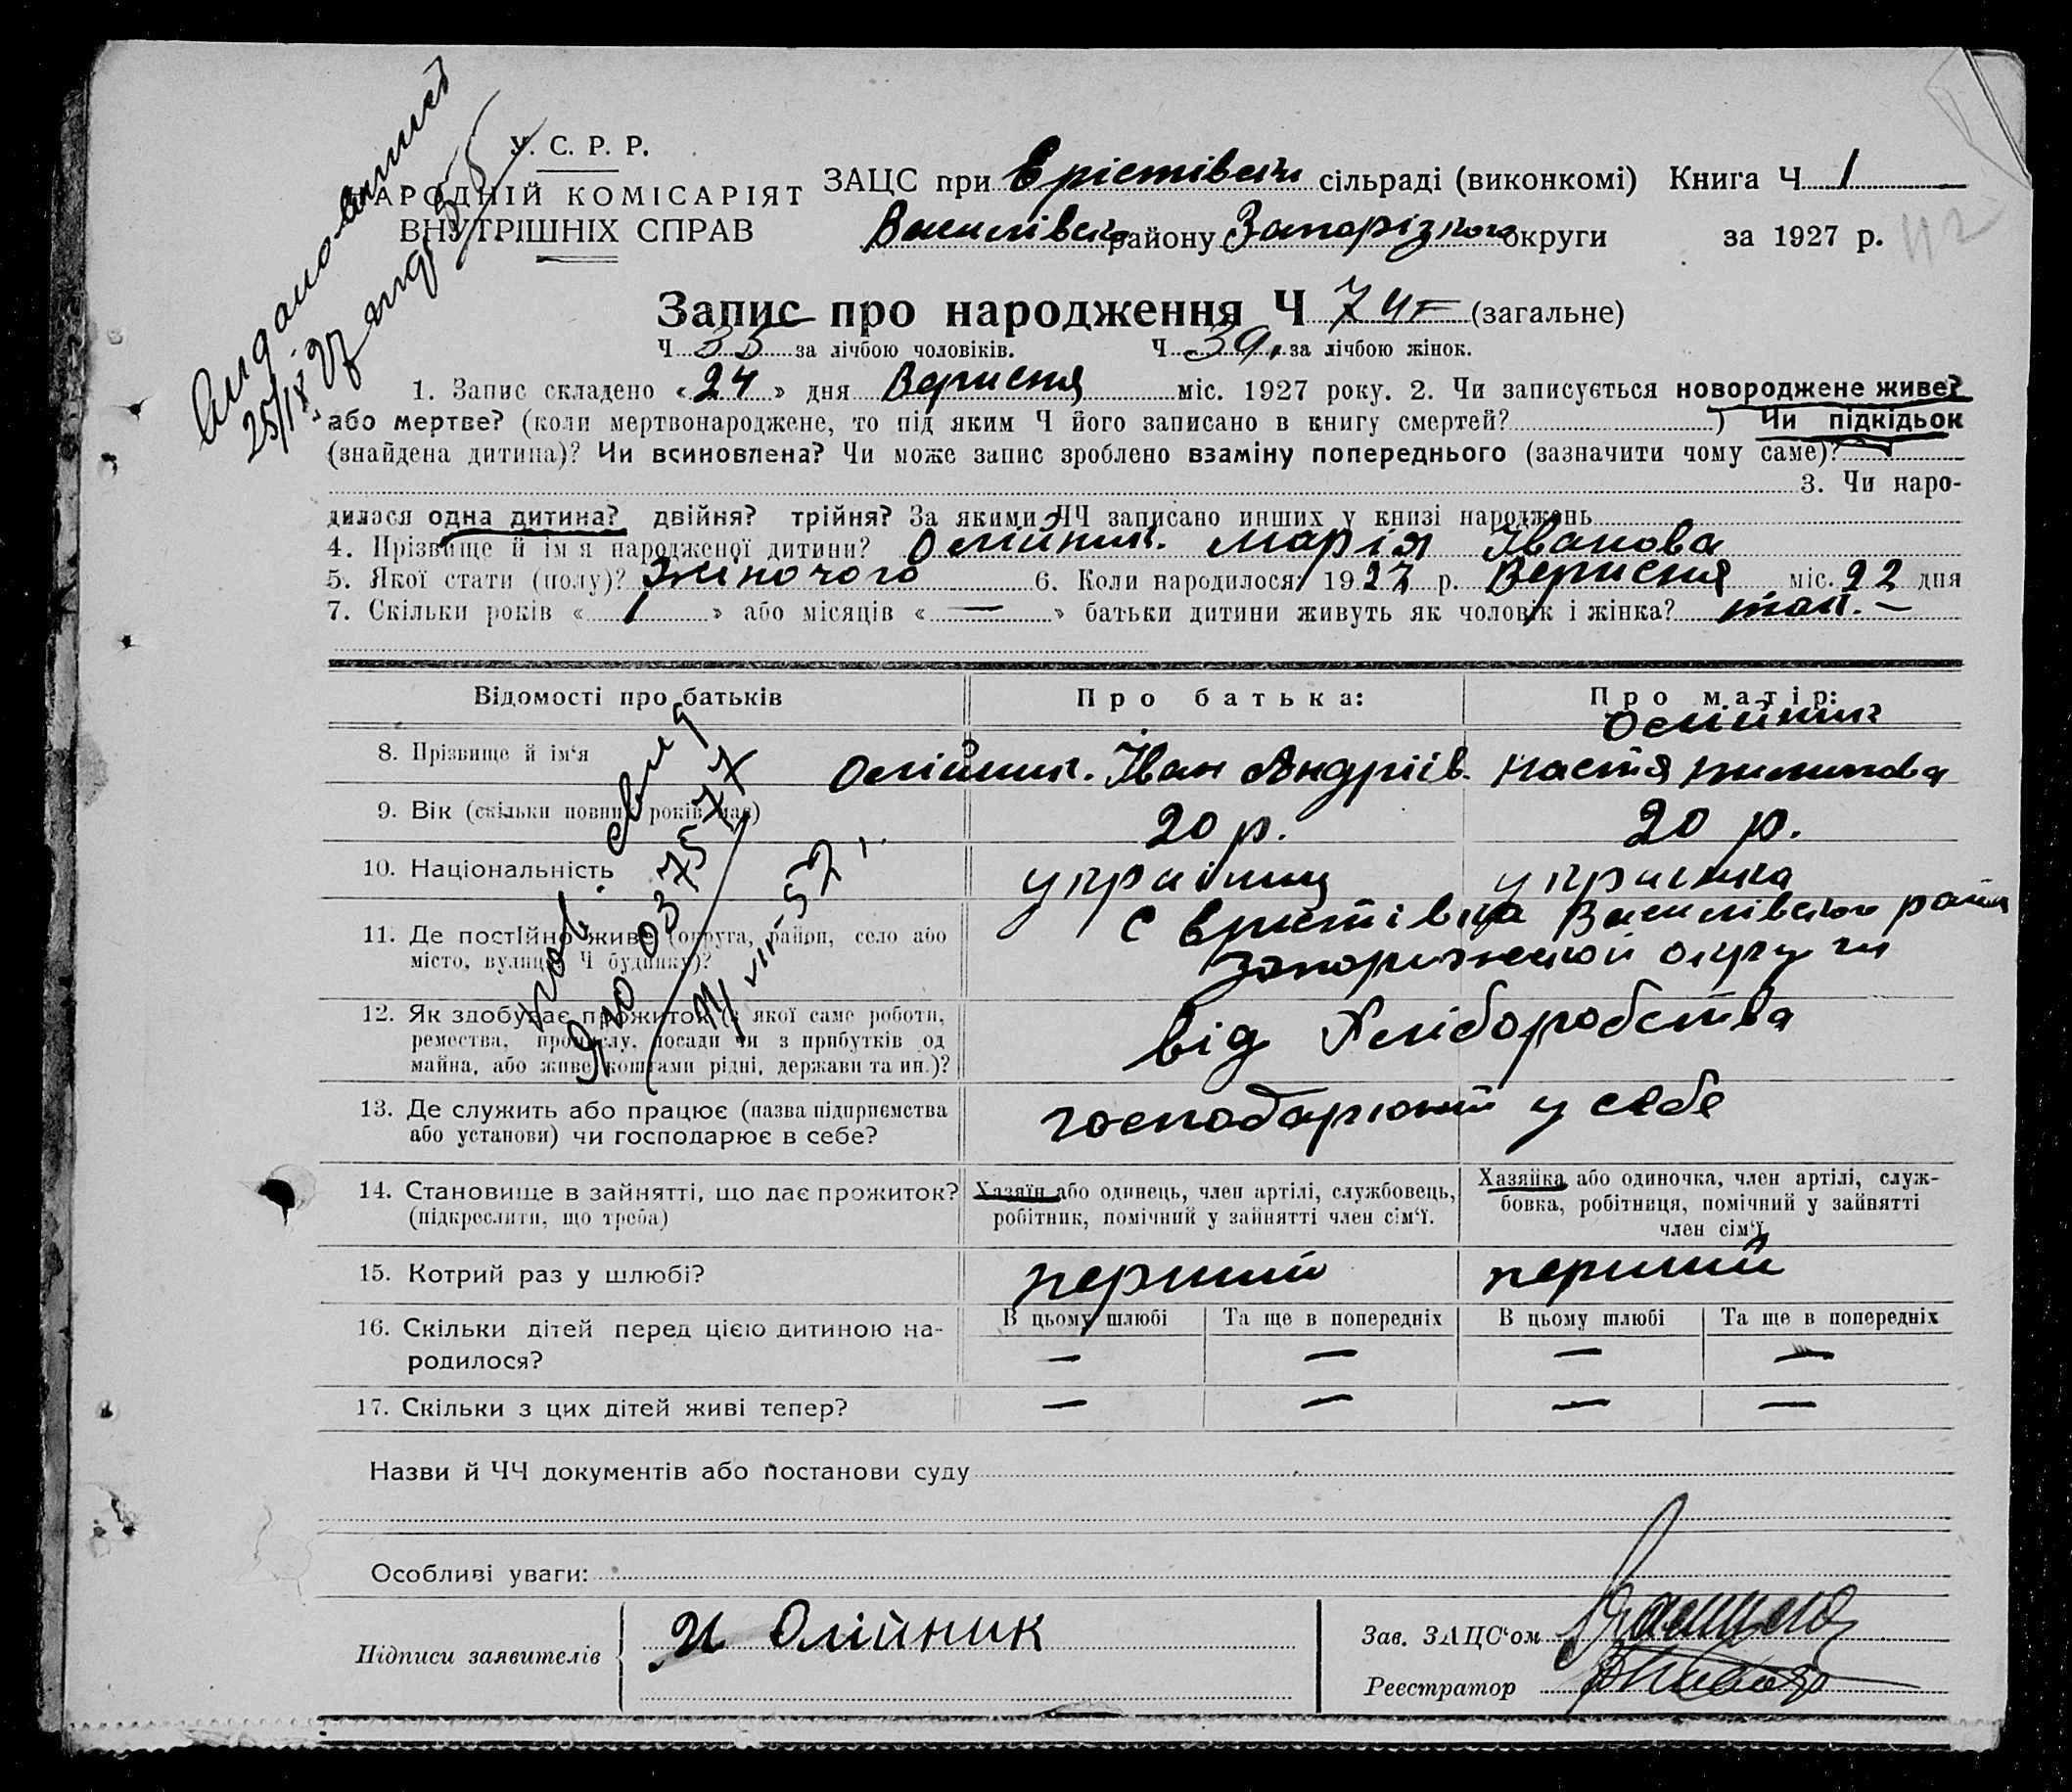 У. С. Р. Р.
АРОДНІЙ КОМІСАРІЯТ
ВНУТРІШНІХ СПРАВ
ЗАЦС при Ерістівськ сільраді (виконкомі) Книга Ч 1
Василівськ району Запорізької округи за 1927 р.
Запис про народження Ч 74 (загальне)
Ч 35 за лічбою чоловіків. Ч 39 за лічбою жінок.
1. Запис складено « 24 » дня Вересня міс. 1927 року. 2. Чи записується новороджене живе?
або мертве? (коли мертвонароджене, то під яким Ч його записано в книгу смертей? ) Чи підкідьок
(знайдена дитина)? Чи всиновлена? Чи може запис зроблено взаміну попереднього (зазначити чому саме)?
3. Чи наро-
дилася одна дитина? двійня? трійня? За якими ЧЧ записано инших у книзі народжень
4. Прізвище й ім'я народженої дитини? Олійник. Марія Іванова
5. Якої стати (полу)? Жіночого 6. Коли народилося? 1927 р. Вересня міс. 22 дня
7. Скільки років « 1 » або місяців « — » батьки дитини живуть як чоловік і жінка? так. —
Відомості про батьків Про батька: Про матір:
8. Прізвище й ім'я Олійник. Іван Андріїв. Олійник Настя
9. Вік (скільки повних років має) 20 р. 20 р.
10. Національність українец українка
11. Де постійно живе (округа, район, село або
місто, вулиця, Ч будинку)?
с Еристівка Василівського район
Запорижської округи
12. Як здобуває прожиток (з якої саме роботи,
ремества, промислу, посади чи з прибутків од
майна, або живе коштами рідні, держави та ин.)?
від Хліборобства
13. Де служить або працює (назва підприємства
або установи) чи господарює в себе?
господарюють у себе
14. Становище в зайнятті, що дає прожиток?
(підкреслити, що треба)
Хазяїн або одинець, член артілі, службовець,
робітник, помічний у зайнятті член сім'ї.
Хазяйка або одиночка, член артілі, служ-
бовка, робітниця, помічний у зайнятті
член сім'ї
15. Котрий раз у шлюбі? перший перший
16. Скільки дітей перед цією дитиною на-
родилося?
В цьому шлюбі Та ще в попередніх В цьому шлюбі Та ще в попередніх
— — — —
17. Скільки з цих дітей живі тепер? — — — —
Назви й ЧЧ документів або постанови суду
Особливі уваги:
Підписи заявителів И Олійник
Зав. ЗАЦС'ом
Реєстратор